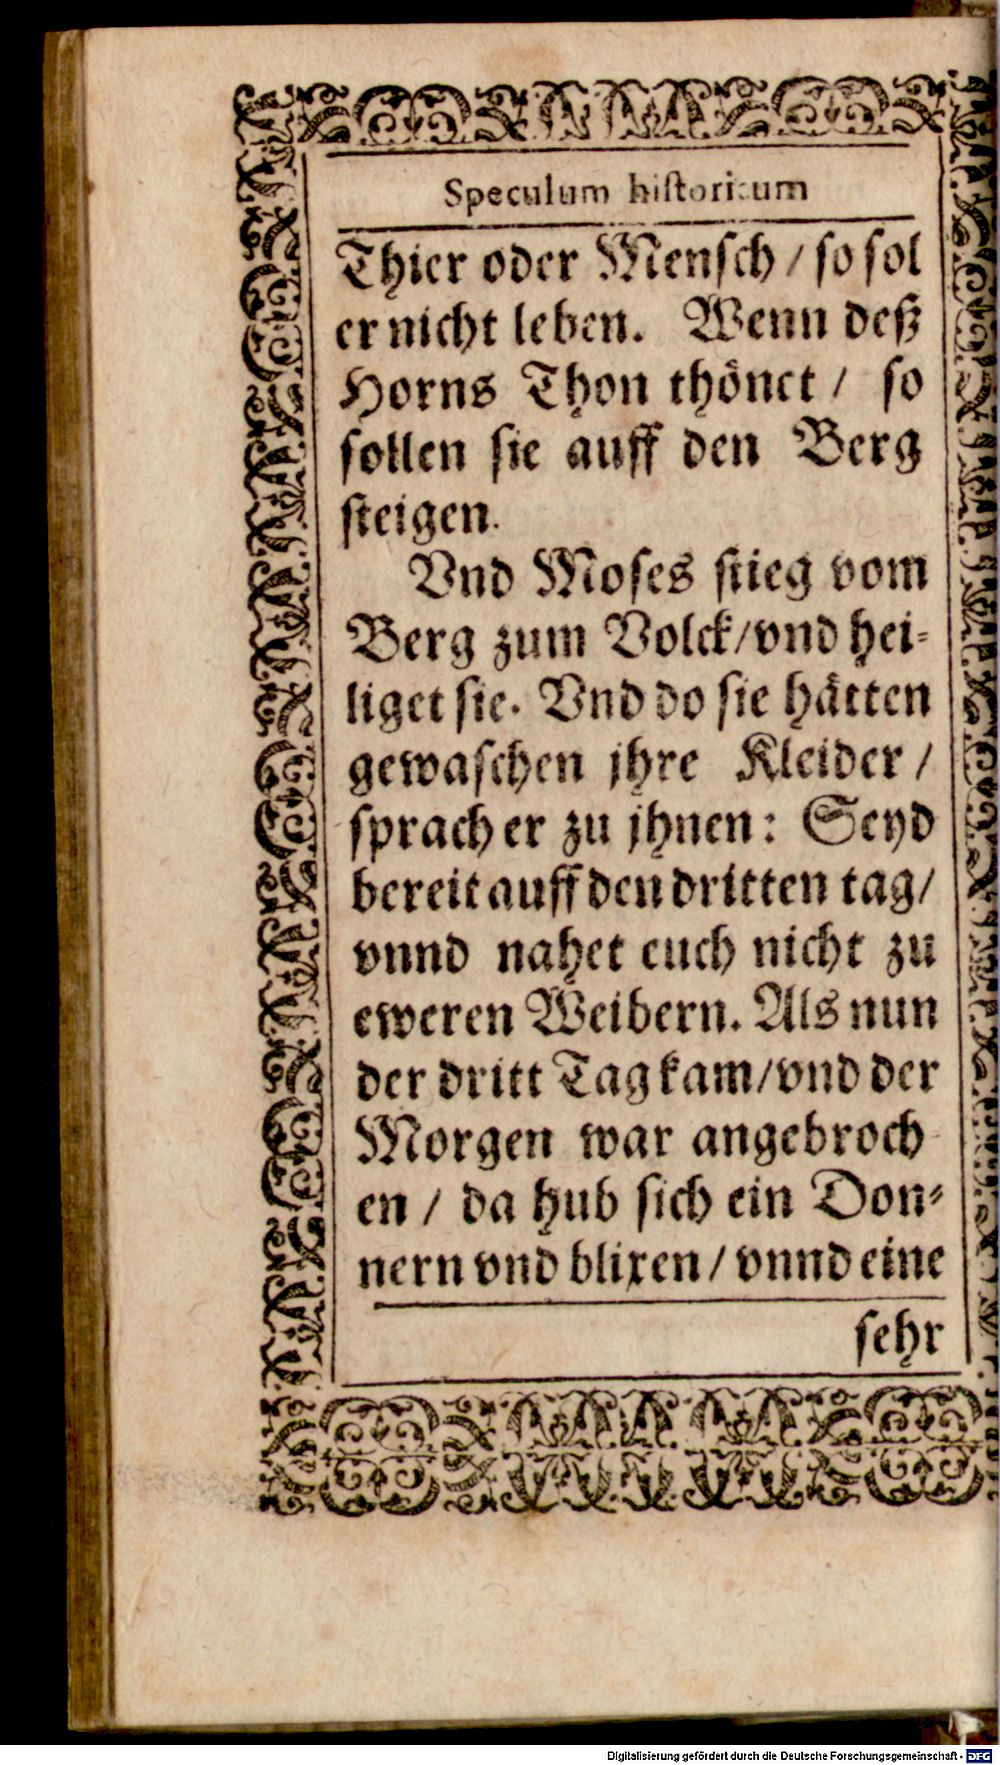 Speculum historicum
Thier oder Mensch / so sol
er nicht leben. Wenn deß
Horns Thon thönet / so
sollen sie auff den Berg
steigen.
Vnd Moses stieg vom
Berg zum Volck/vnd hei-
liget sie. Vnd do sie hätten
gewaschen jhre Kleider /
sprach er zu jhnen: Seyd
bereit auff den dritten tag/
vnnd nahet euch nicht zu
eweren Weibern. Als nun
der dritt Tag kam/vnd der
Morgen war angebroch-
en / da hub sich ein Don-
nern vnd blixen / vnnd eine
sehr
Digitalisierung gefördert durch die Deutsche Forschungsgemeinschaft - DFG